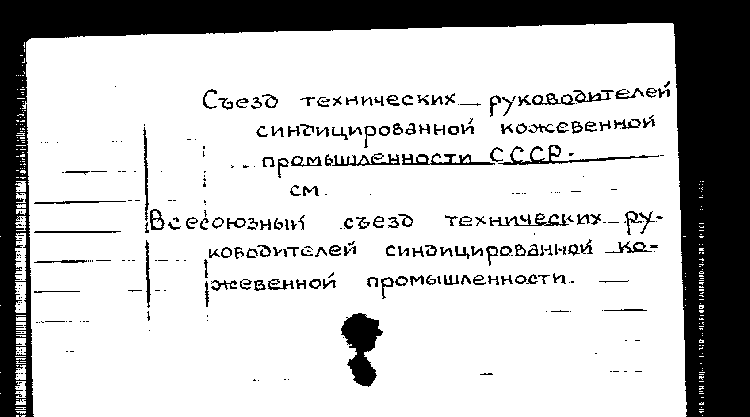 Съезд технических руководителей
синдицированной кожевенной
промышленности СССР.
см.
Всесоюзный съезд технических ру-
ководителей синдицированной ко-
жевенной промышленности.